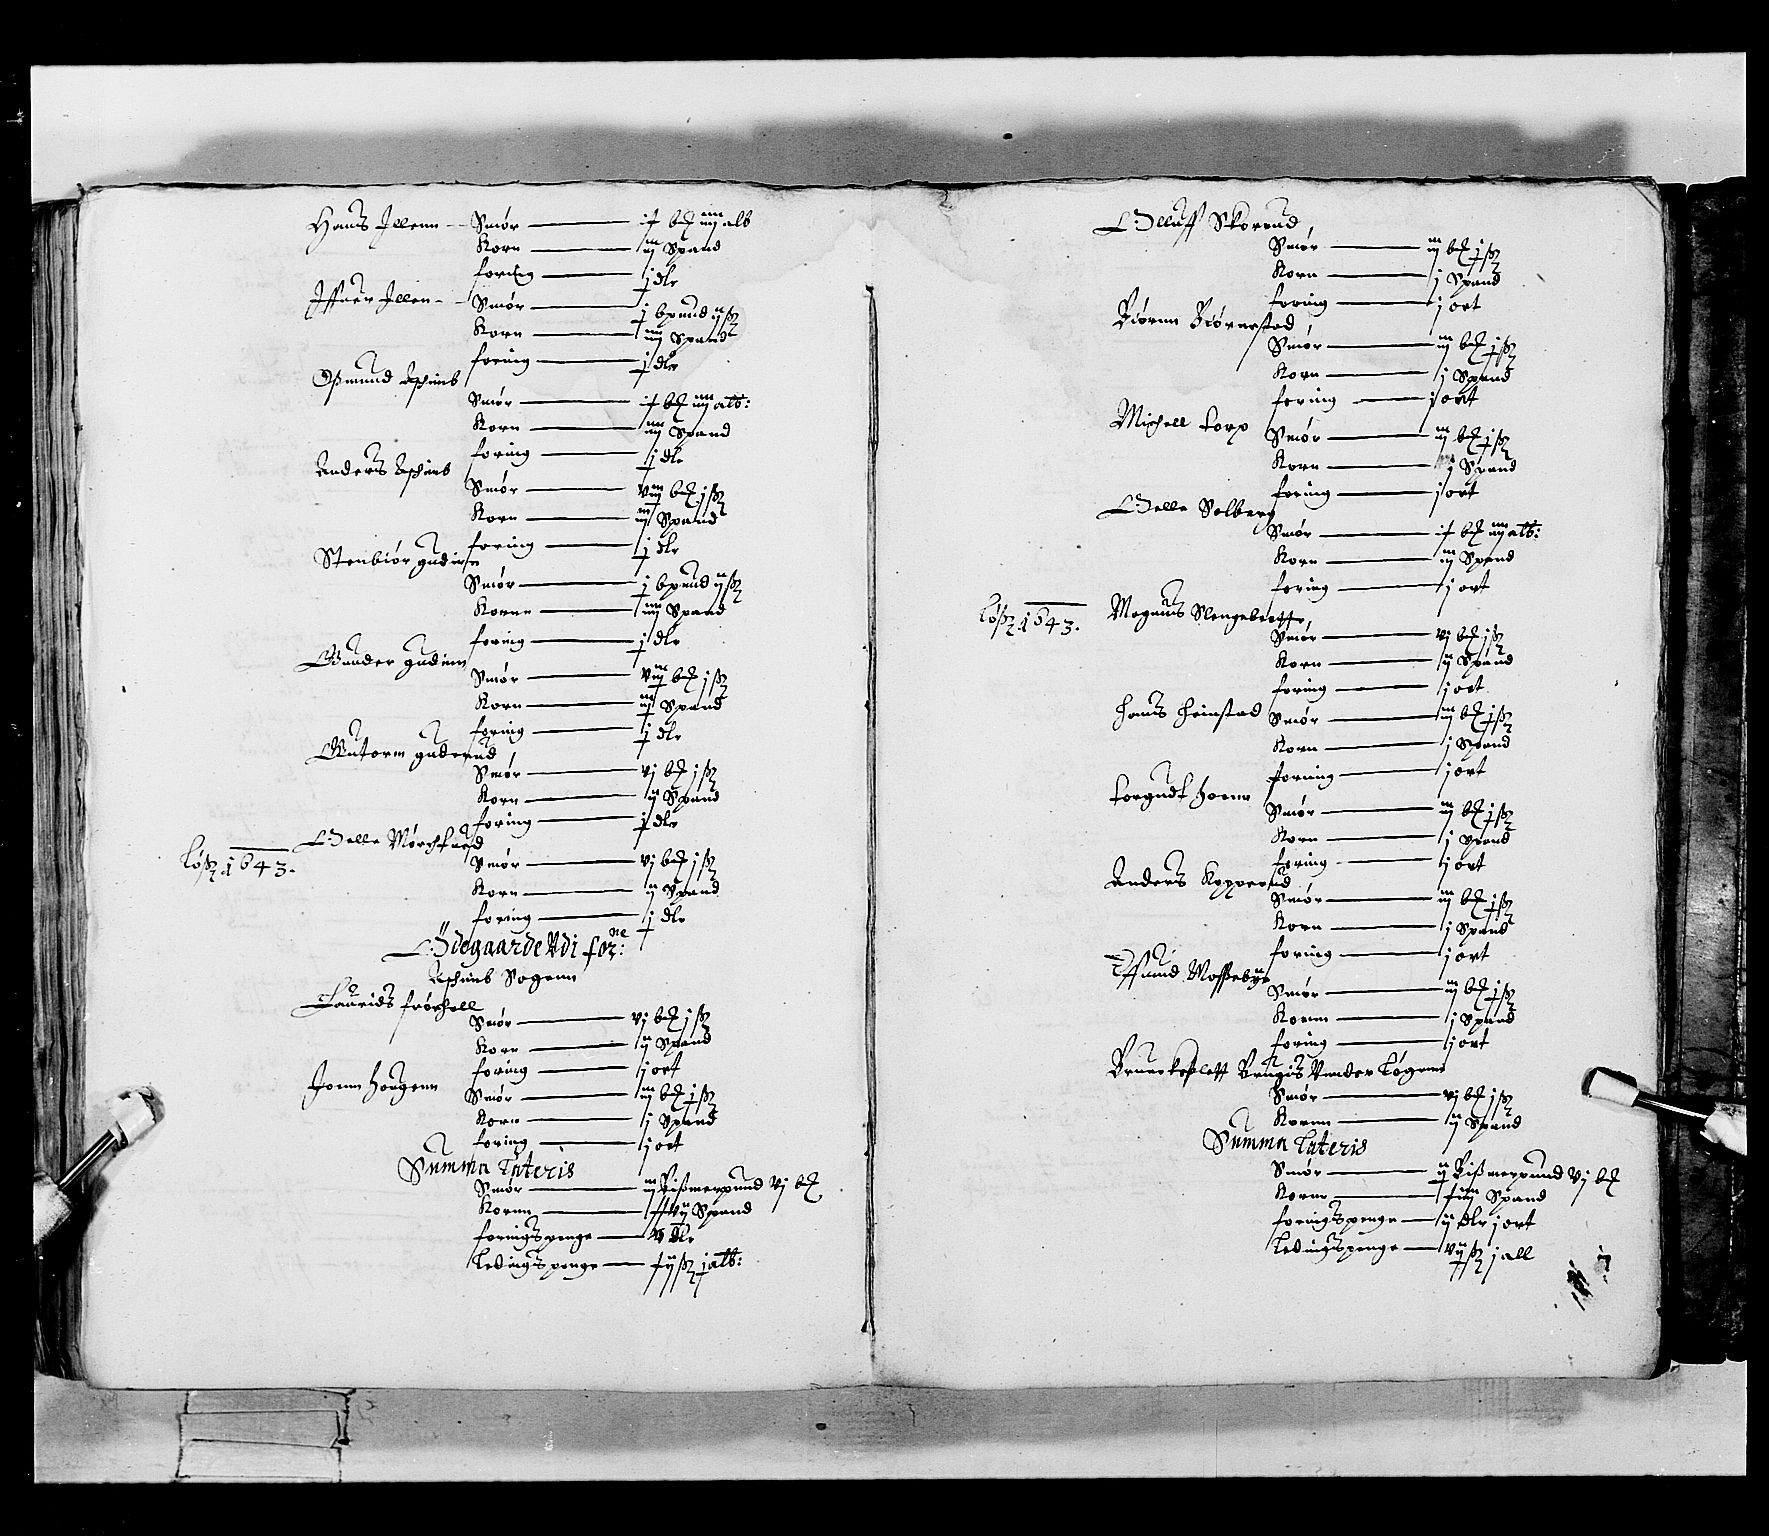 Hans Jllenn
Smør — jt b𝔷 iiij alb
Korn — iij Spand
foring — j dlr
Jffuer Jllen
Smør — j bpund ij ß
Korn — iiij Spand
foring — j dlr
Oßmund Aschimb
Smør — jt b𝔷 iiij alb:
Korn — iiij Spand
foring — j dlr
Anders Aschimb
Smør — viij b𝔷 j ß
Korn — iij Spand
foring — j dlr
Stenbiør gudim
Smør — j bpund ij ß
Kornn — iiij Spand
foring — j dlr
Gunder gudim
Smør — viij b𝔷 j ß
Korn — iij Spand
foring — j dlr
Gutorm guderud
Smør — vj b𝔷 j ß
Korn — ij Spand
foring — j dlr
Løß 1643.
Olle Mørchfued
Smør — vj b𝔷 j ß
Korn — ij Spand
foring — j dlr
Ödegaarde Udi for:ne
Aschimb Sogenn
Laurids frøshell
Smør — vj b𝔷 j ß
Korn — ij Spand
foring — j ort
Joenn Hougenn
Smør — iij b𝔷 j ß
Korn — j Spand
foring — j ort
Summa Lateris
Smør — iij Bißmerpund vj b𝔷
Kornn — Spand
foringspenge — dlr
Ledingspenge — ß j alb:
Olluff Skorrud
Smør — iij b𝔷 j ß
Korn — j Spand
foring — j ort
Biørnn Biørnestad
Smør — iij b𝔷 j ß
Korn — j Spand
foring — j ort
Michell torp
Smør — iij b𝔷 j ß
Korn — j Spand
foring — j ort
Olle Solberg
Smør — jt b𝔷 iiij alb:
Korn — iij Spand
foring — j ort
Løß 1643.
Mognus Slengebrotte
Smør — vj b𝔷 j ß
Korn — ij Spand
foring — j ort
Hans Heinstad
Smør — iij b𝔷 j ß
Korn — j Spand
forning — j ort
torgudt Hoenn
Smør — iij b𝔷 j ß
Korn — j Spand
foring — j ort
Anders Kopperud
Smør — iij b𝔷 j ß
Korn — j Spand
foring — j ort
Smør — iij b𝔷 j ß
Kornn — j Spand
foring — j ort
Brugis Vnder
Smør — vj b𝔷 j ß
Kornn — ij Spand
Summa Lateris
Smør — ij Bißmerpund vj b𝔷
Kornn — Spand
foringspenge — ij dlr j ort
Ledingspenge — vij ß j all